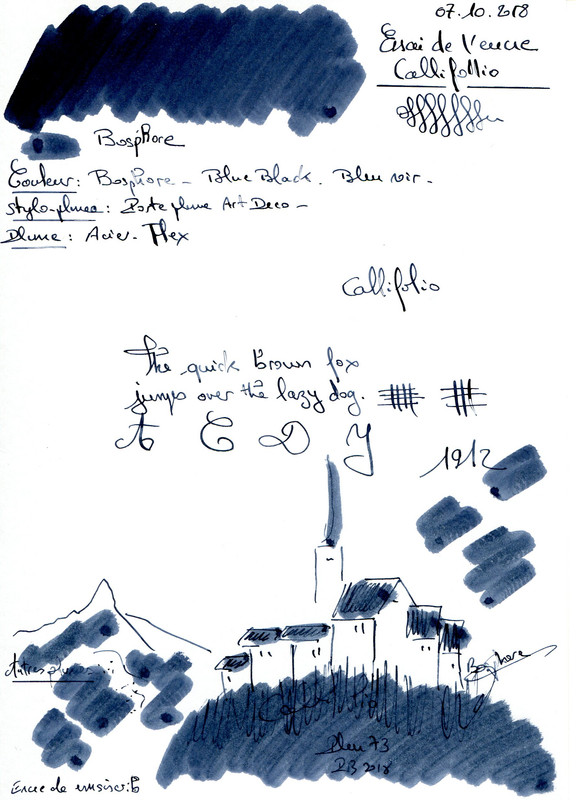 07.10.2018
Essai de l'encre
Callifolio
Bosphore
Couleur: Bosphore - Blue Black. Bleu noir -
Stylo-plume : Porte plume Art Deco -
Plume : Acier - Flex
Callifolio
The quick brown fox
jumps over the lazy dog.
A E D Y
1912
Autres plumes
Bosphore
2018
Encre de